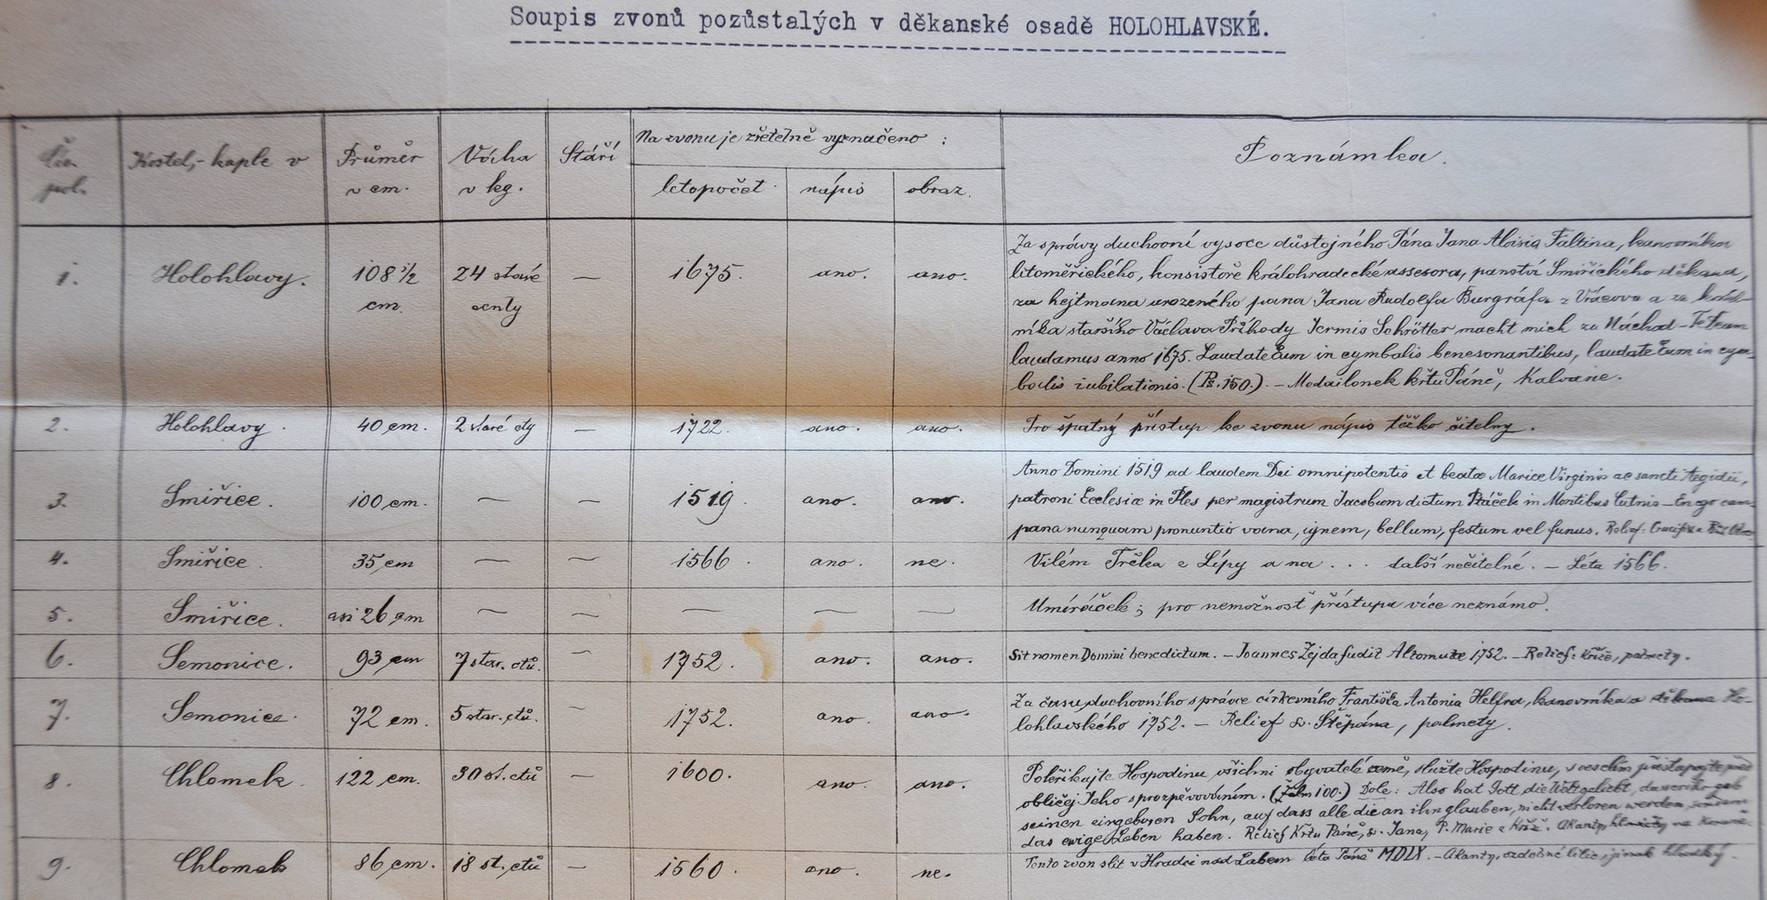 Soupis zvonů pozůstalých v děkanské osadě HOLOHLAVSKÉ.
pol. Kostel,- kaple v Průměr v cm. Váha v kg. Stáří Na zvonu je zřetelně vyznačeno : Poznámka.
letopočet nápis obraz.
1. Holohlavy. 108 1/2 cm. 24 staré centy — 1675. ano. ano.
Za správy duchovní vysoce důstojného Pána Jana Aloisia Faltina, kanovníka
litoměřického, konsistoře králohradecké assesora, panství Smiřického děkana,
za hejtmana urozeného pana Jana Rudolfa Burgráfa z Vrácova a za
staršího Václava Příhody Jermis Schrötter macht mich zu Náchod - Te Deum
laudamus anno 1675. Laudate Eum in cymbalis benesonantibus, laudate Eum in cym-
balis iubilationis. (Ps. 150.) - Medailonek křtu Páně, Kalvarie.
2. Holohlavy. 40 cm. 2 staré cty — 1722. ano. ano. Pro špatný přístup ke zvonu nápis těžko čitelný.
3. Smiřice. 100 cm. — — 1519. ano. ano.
Anno Domini 1519 ad laudem Dei omnipotentis et beatae Mariae Virginis ac sancti Aegidii,
patroni Ecclesiae in Ples per magistrum Jacobum dictum Ptáček in Montibus Cutnis - En ego cam-
pana nunquam pronuntio vana, ignem, bellum, festum vel funus. Relief:
4. Smiřice. 35 cm — — 1566. ano. ne. Vilém Trčka z Lípy a na . . . další nečitelné. - Léta 1566.
5. Smiřice. asi 26 cm — — — — — Umíráček; pro nemožnost přístupu více neznámo.
6. Semonice. 93 cm 7 star. ctů. — 1752. ano. ano. Sit nomen Domini benedictum. - Joannes Zejda fudit 1752. - Relief: kříže, palmety.
7. Semonice. 72 cm. 5 star. ctů. — 1752. ano. ano.
Za času duchovního správce církevního Františka Antonia Helfra, kanovníka a děkana Ho-
lohlavského 1752. - Relief sv. Štěpána, palmety.
8. Chlomek. 122 cm. 30 st. ctů — 1600. ano. ano.
Pokřikujte Hospodinu všichni obyvatelé země, služte Hospodinu, s veselím přistupujte před
obličej Jeho s prozpěvováním. (Žalm 100.) Dole: Also hat Gott die Welt geliebt, dass er
seinen eingeboren Sohn, auf dass alle die an ihn glauben, nicht verloren werden, sondern
das ewige Leben haben. Relief Křtu Páně, sv. Jana, P. Marie a Kříž.
9. Chlomek 86 cm. 18 st. ctů — 1560. ano. ne. Tento zvon slit v Hradci nad Labem léta Páně MDLX. - Akanty, ozdobné lilie, jinak hladký.